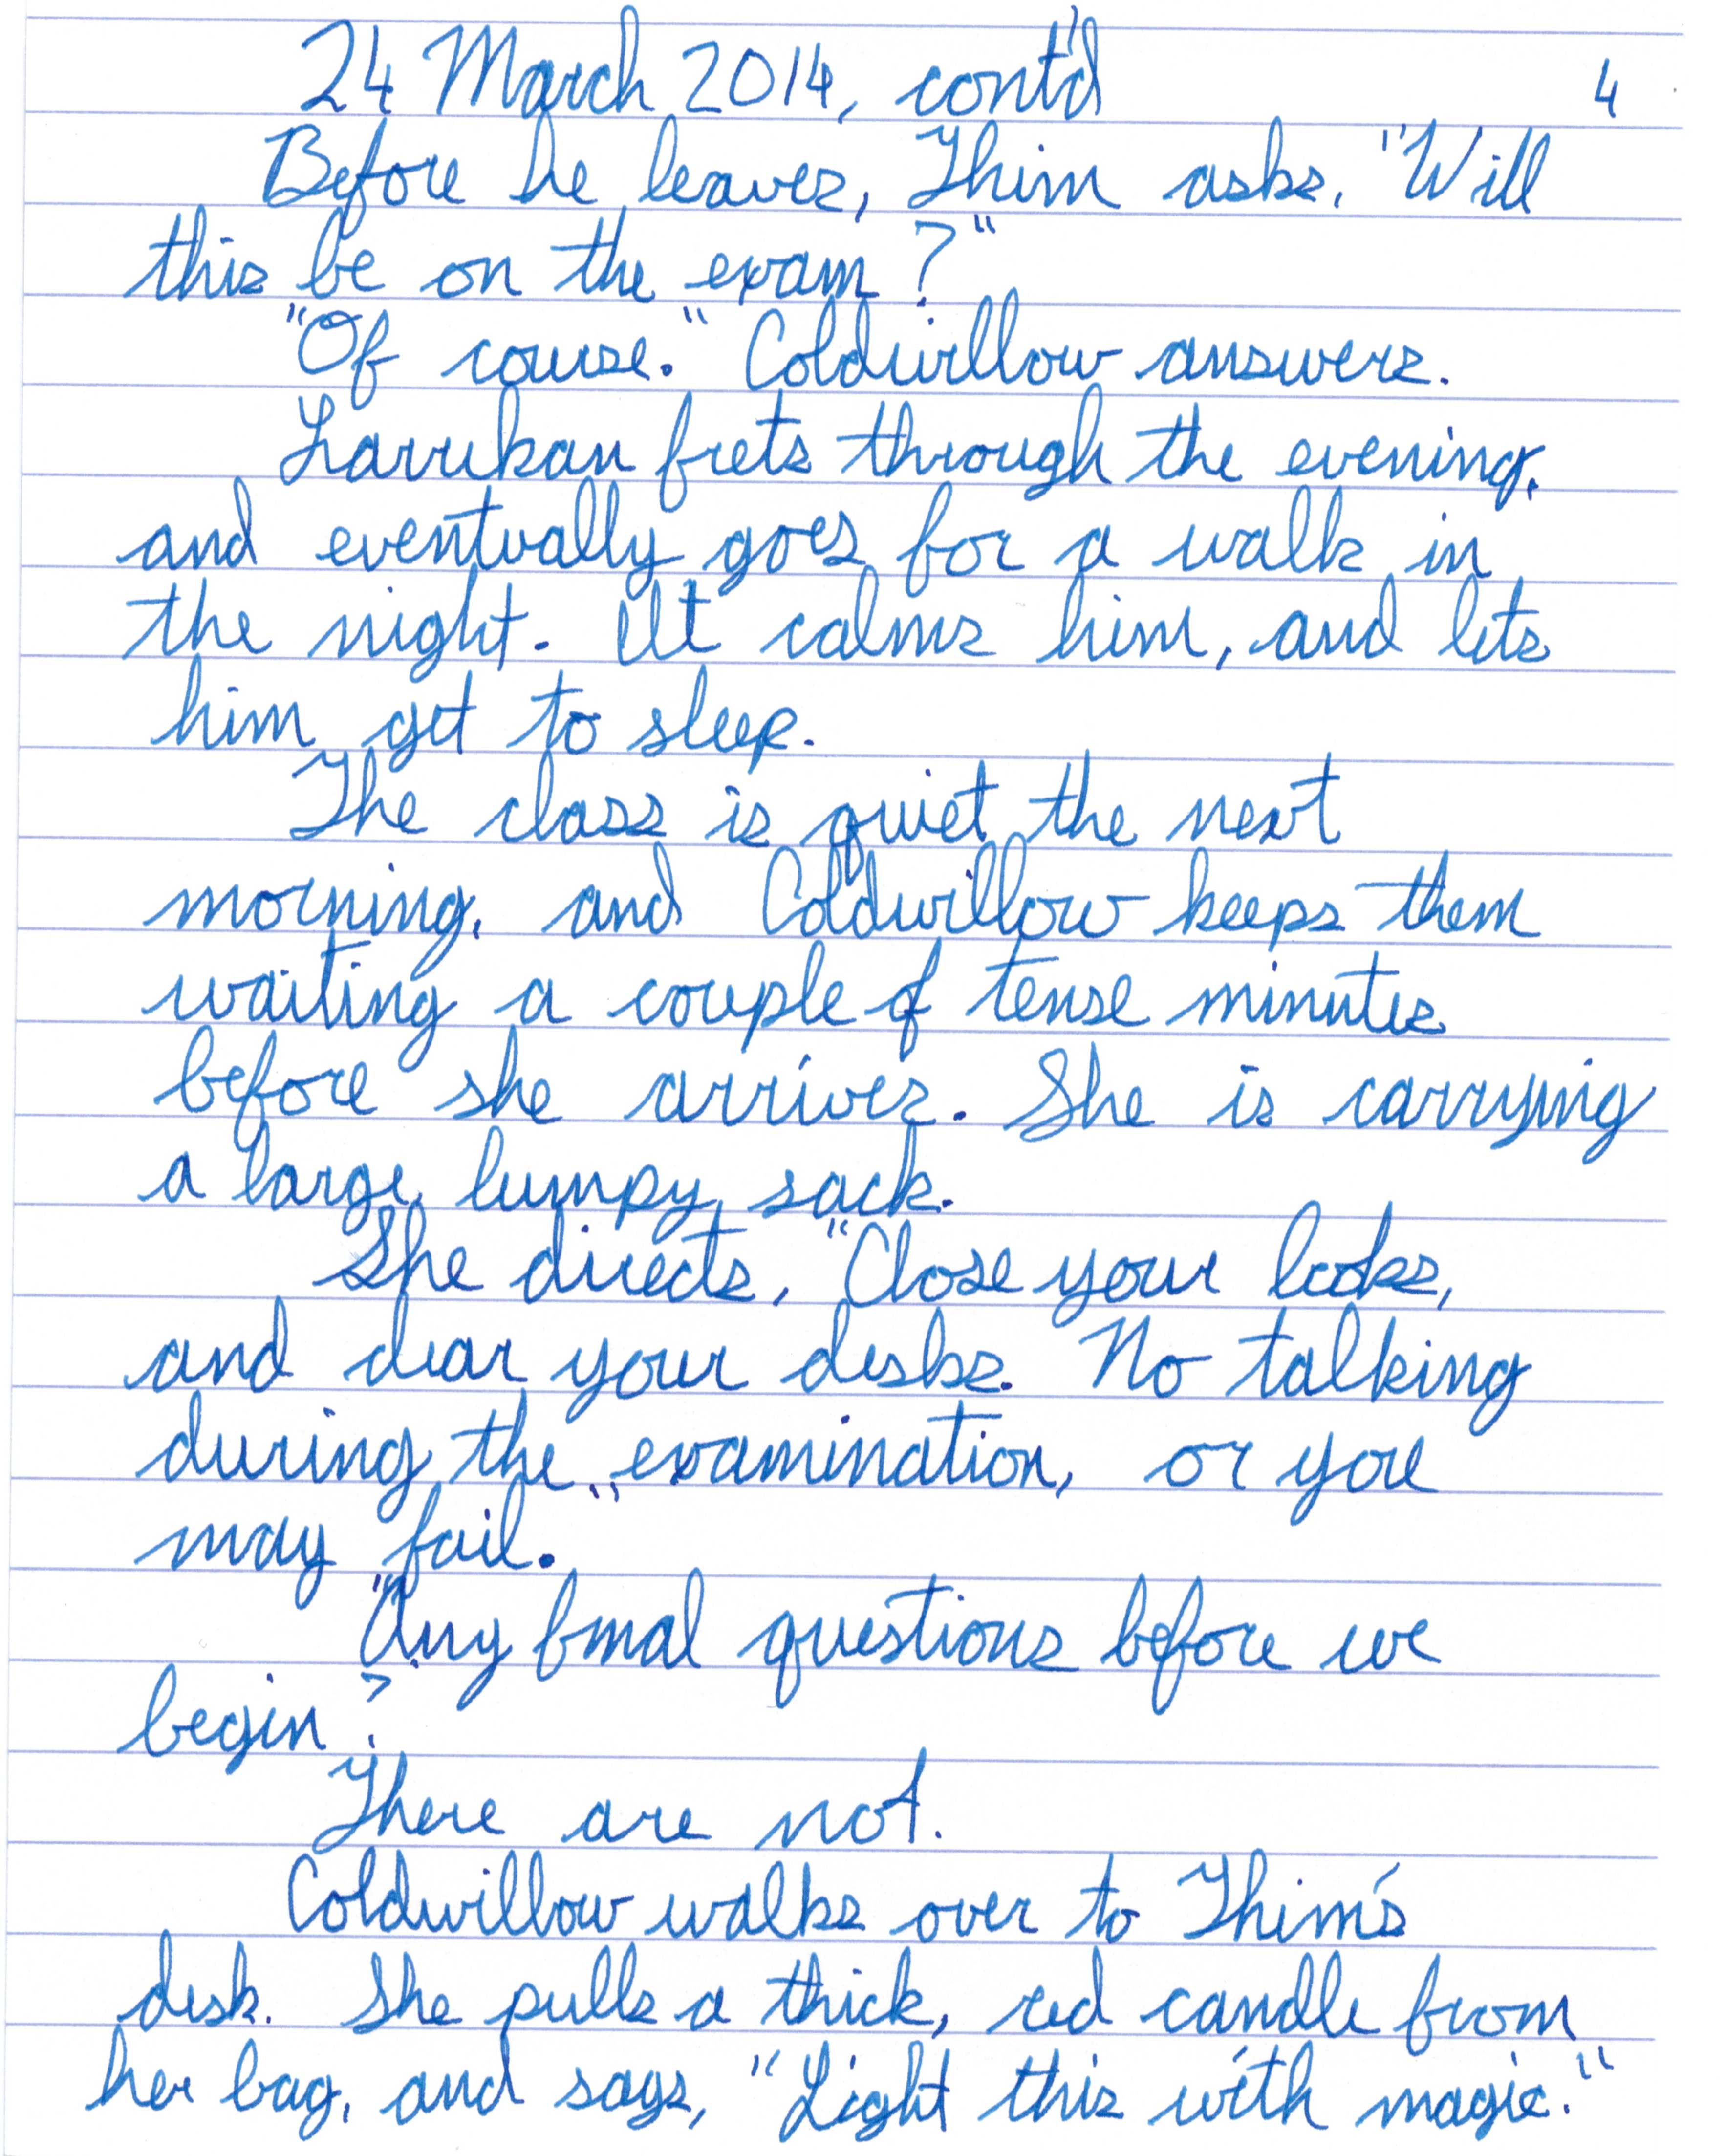 24 March 2014, cont'd 4
Before he leaves, Thim asks, "Will
this be on the exam?"
"Of course." Coldwillow answers.
Larrikan frets through the evening,
and eventually goes for a walk in
the night. It calms him, and lets
him get to sleep.
The class is quiet the next
morning, and Coldwillow keeps them
waiting a couple of tense minutes
before she arrives. She is carrying
a large, lumpy, sack.
She directs, "Close your books,
and clear your desks. No talking
during the examination, or you
may fail."
"Any final questions before we
begin?"
There are not.
Coldwillow walks over to Thim's
desk. She pulls a thick, red candle from
her bag, and says, "Light this with magic."